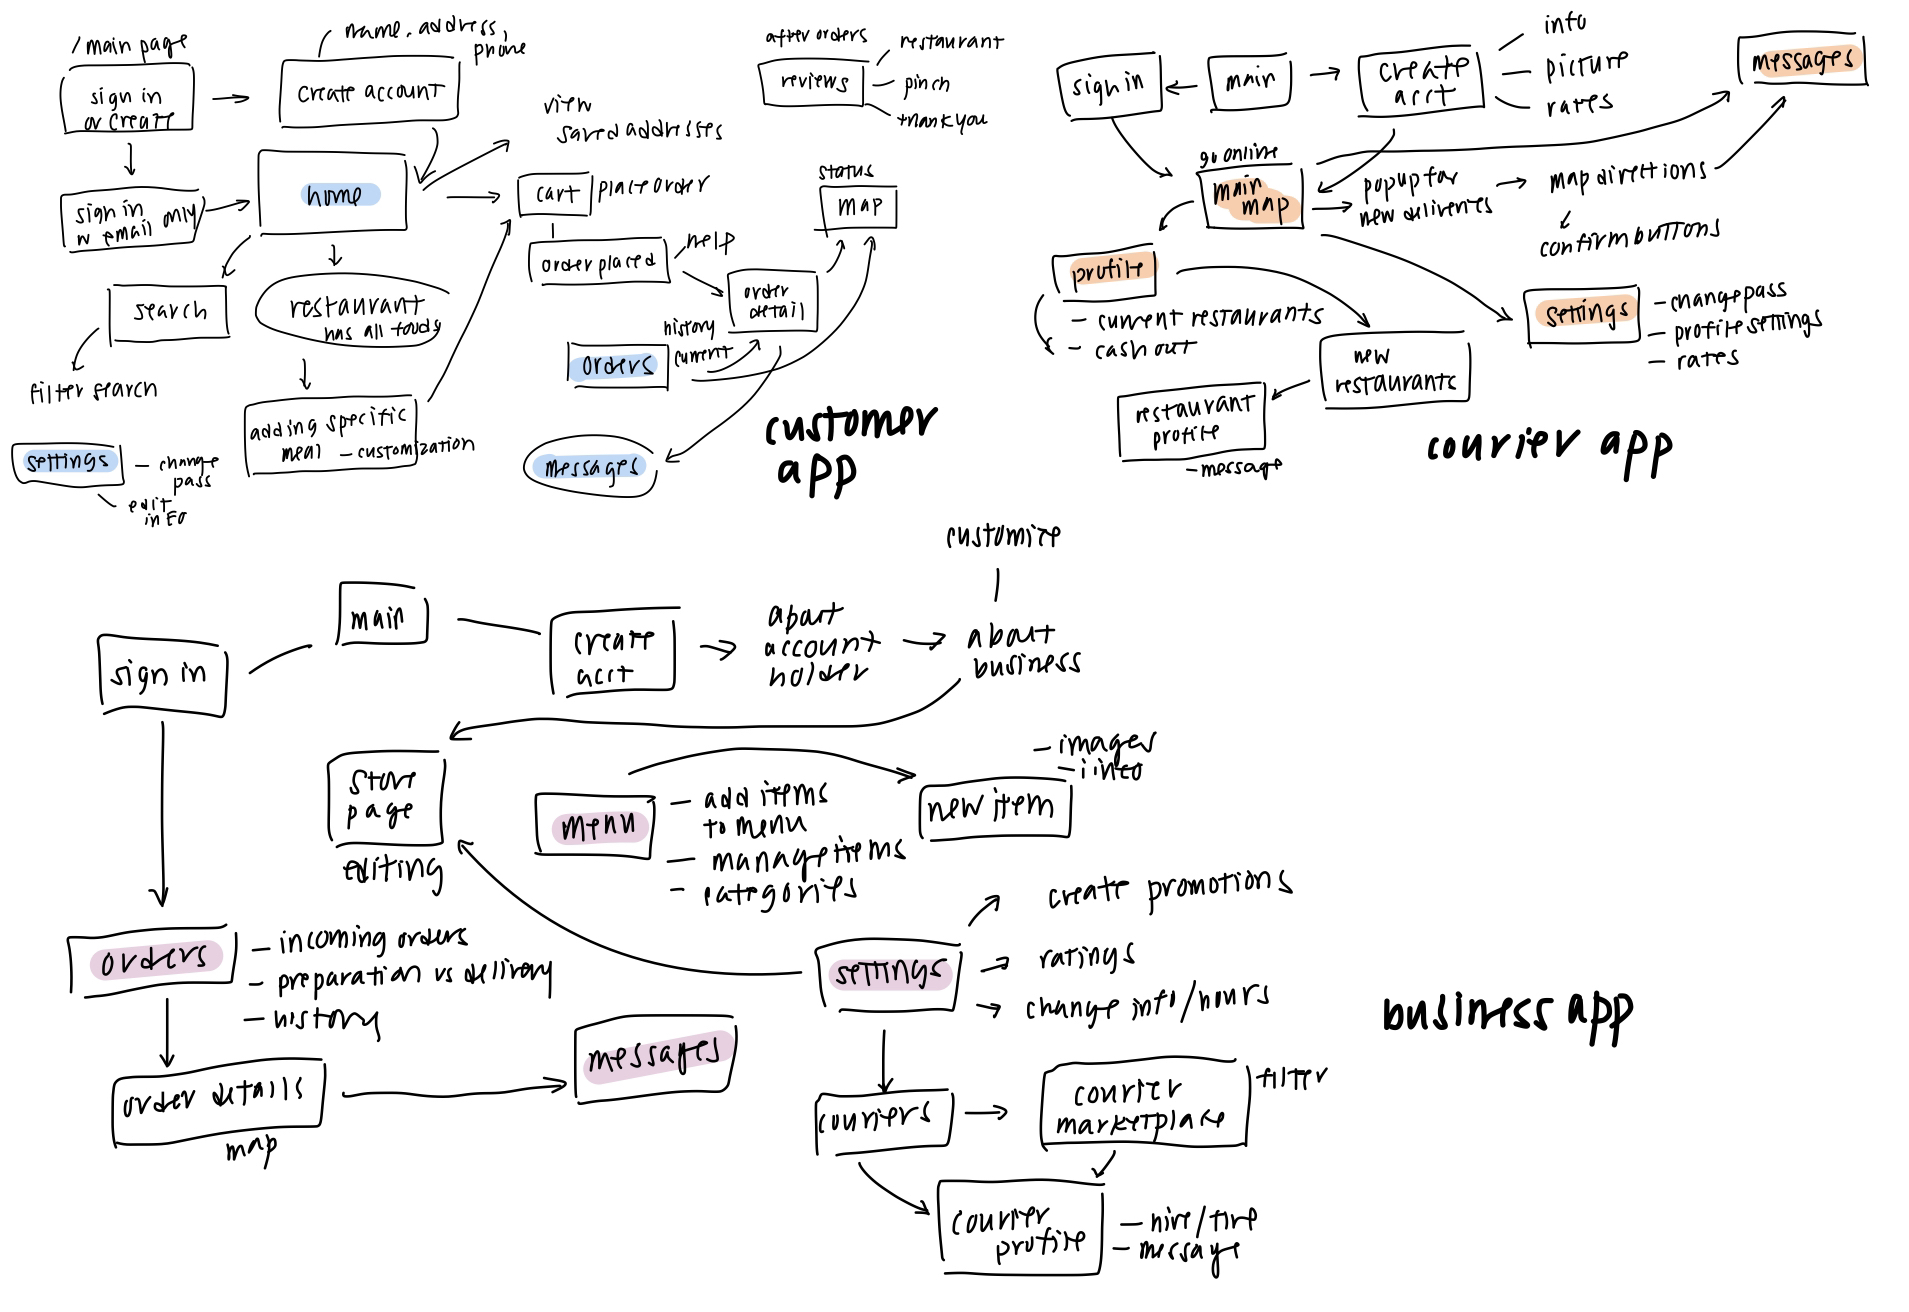 /main page
sign in
or create
create account
name, address,
phone
sign in
w email only
home
view
saved addresses
search
filter search
restaurant
has all foods
adding specific
meal - customization
settings
- change
pass
edit
info
cart
place order
order placed
help
order
detail
history
current
orders
messages
status
map
after orders
reviews
restaurant
pinch
thank you
customer
app
sign in
main
create
acct
info
picture
rates
messages
go online
main
map
popup for
new deliveries
map directions
confirm buttons
profile
- current restaurants
- cash out
new
restaurants
restaurant
profile
- message
settings
- change pass
- profile settings
- rates
courier app
sign in
main
create
acct
about
account
holder
about
business
customize
store
page
editing
menu
- add items
to menu
- manage items
- categories
new item
- images
- info
orders
- incoming orders
- preparation vs delivery
- history
order details
map
messages
settings
create promotions
ratings
change info/hours
couriers
courier
marketplace
filter
courier
profile
- hire/fire
- message
business app